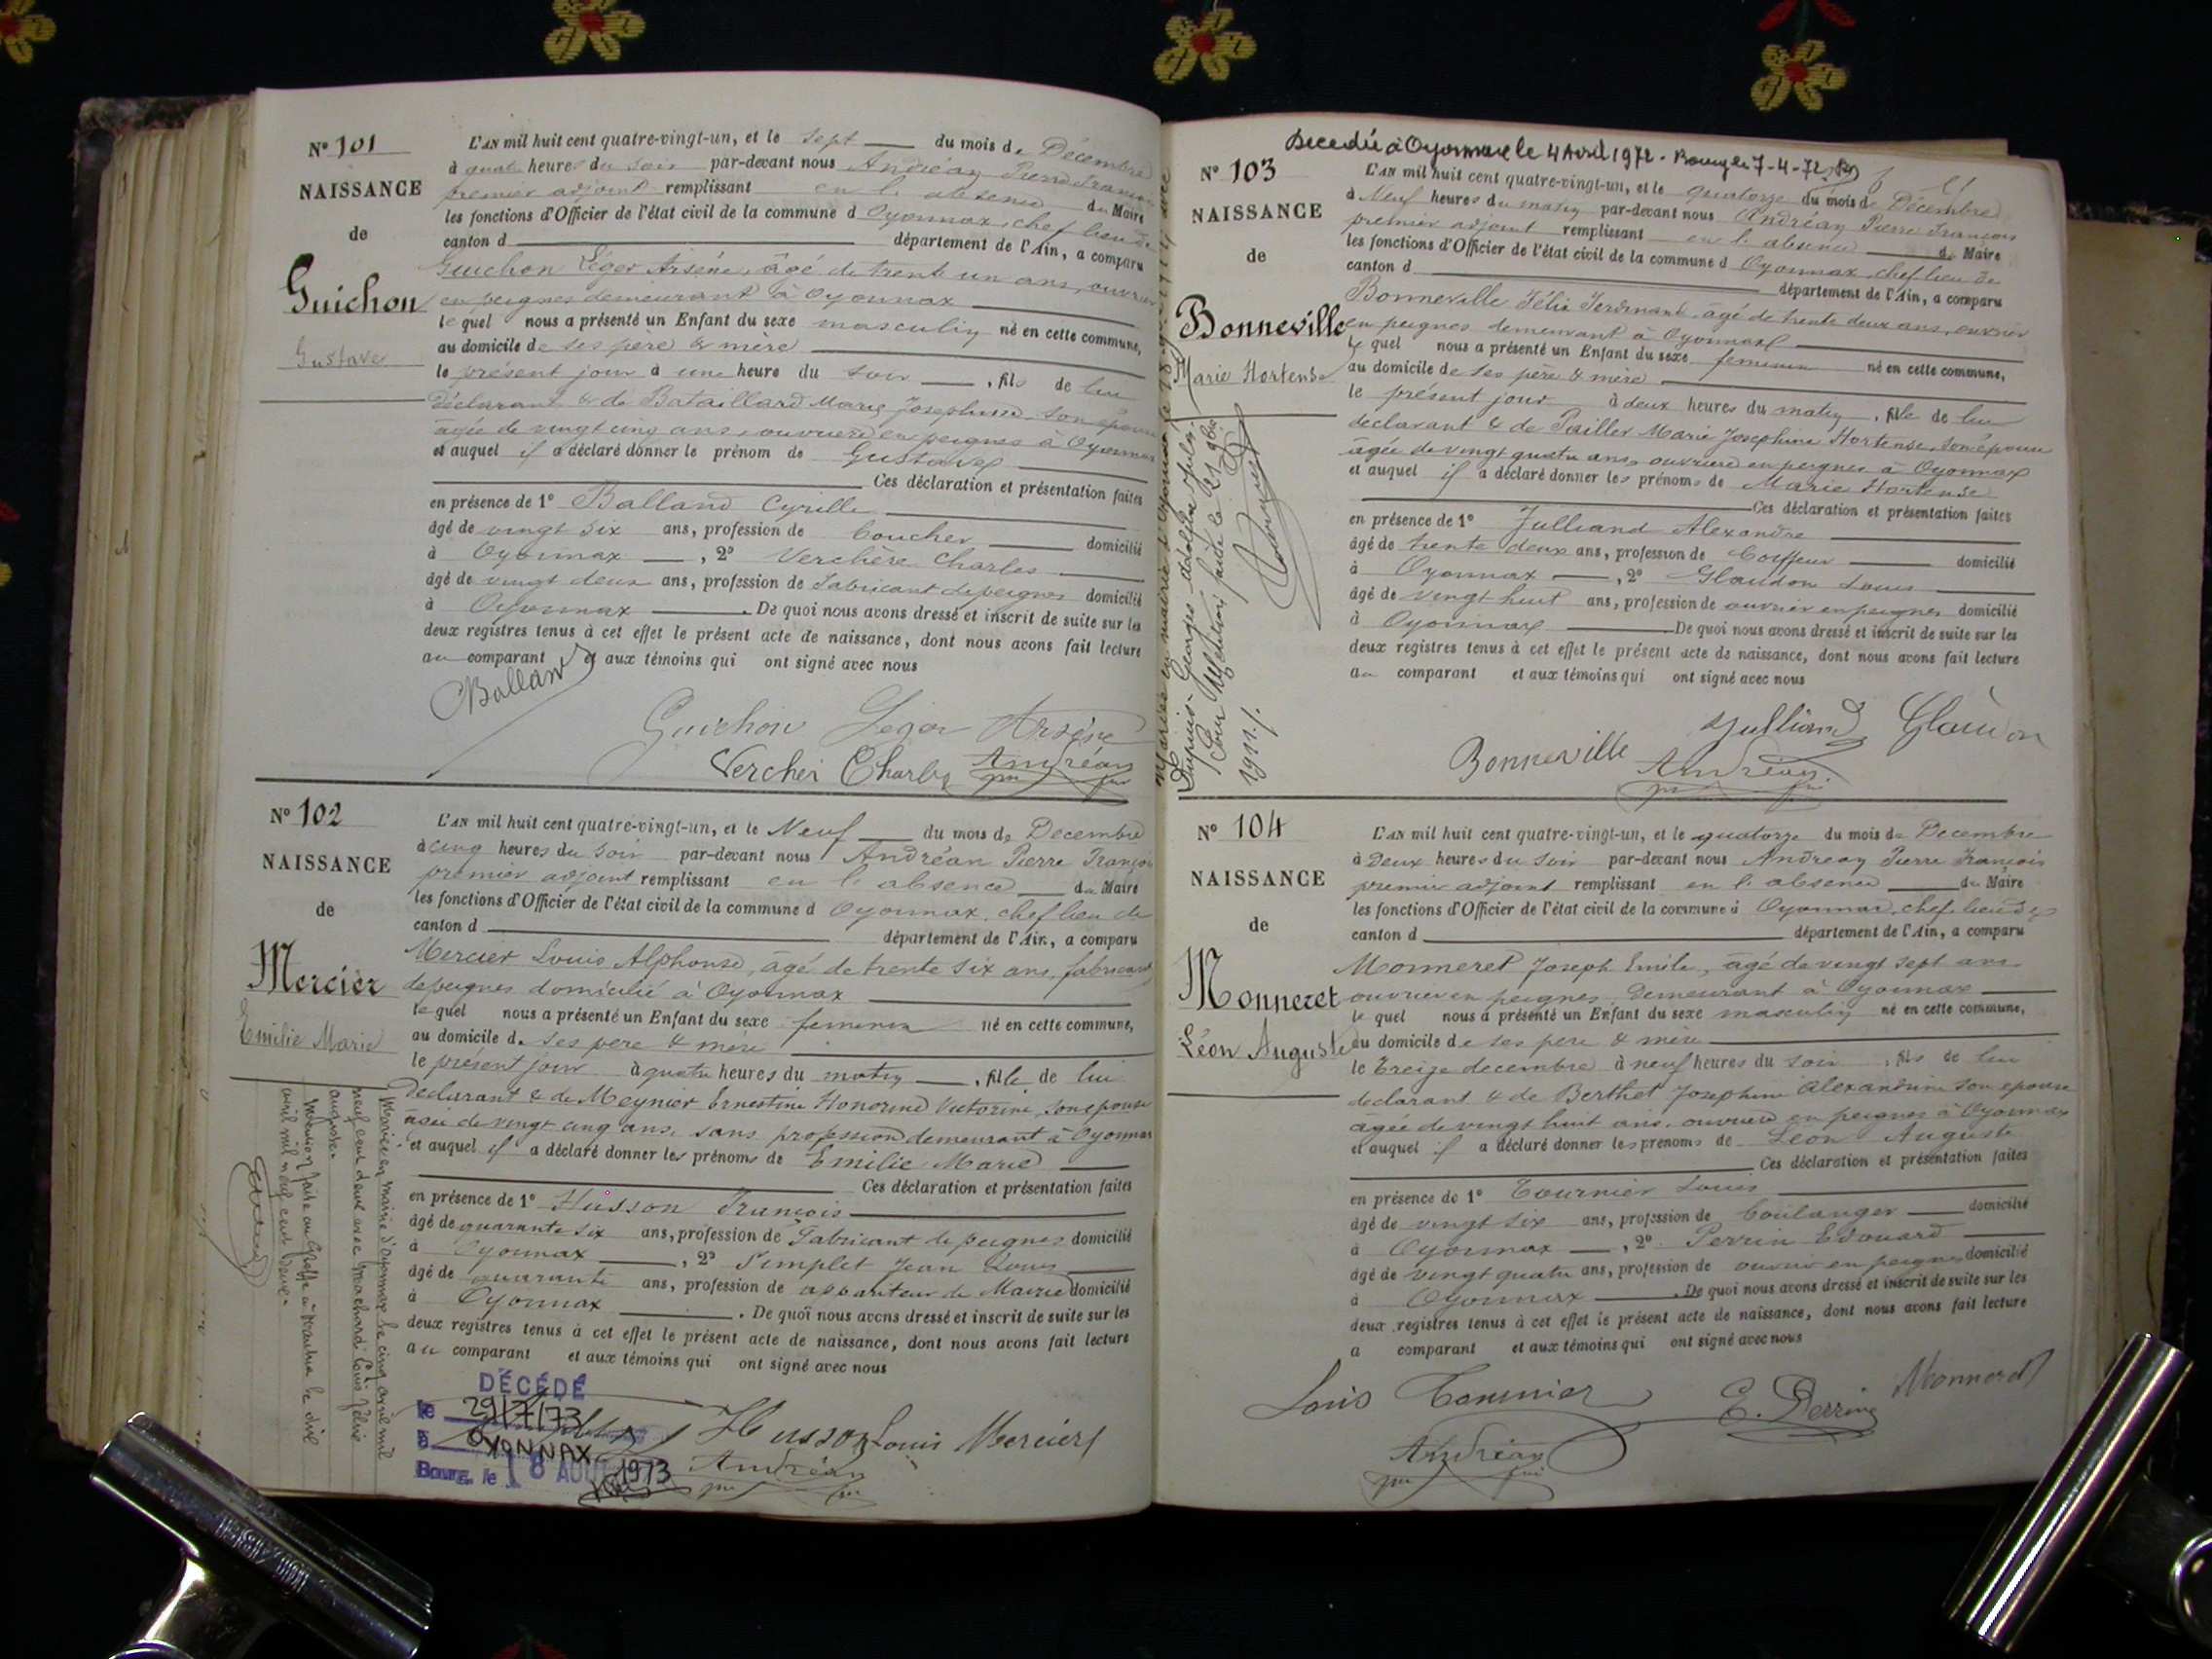 N° 101
NAISSANCE
de
Guichon
Gustave
L'AN mil huit cent quatre-vingt-un, et le sept du mois de Décembre
à quatre heures du soir par-devant nous Andréan Pierre François
premier adjoint remplissant en l'absence du Maire
les fonctions d'Officier de l'état civil de la commune d Oyonnax, chef lieu de
canton d département de l'Ain, a comparu
Guichon Léger Arsène, âgé de trente un ans, ouvrier
en peignes demeurant à Oyonnax
lequel nous a présenté un Enfant du sexe masculin né en cette commune,
au domicile de ses père & mère
le présent jour à une heure du soir, fils de lui
déclarant & de Bataillard Marie Josephine, son épouse
âgée de vingt cinq ans, ouvrière en peignes à Oyonnax
et auquel il a déclaré donner le prénom de Gustave
Ces déclaration et présentation faites
en présence de 1° Balland Cyrille
âgé de vingt six ans, profession de boucher domicilié
à Oyonnax, 2° Verchère Charles
âgé de vingt deux ans, profession de Fabricant de peignes domicilié
à Oyonnax. De quoi nous avons dressé et inscrit de suite sur les
deux registres tenus à cet effet le présent acte de naissance, dont nous avons fait lecture
au comparant et aux témoins qui ont signé avec nous
Balland
Guichon Leger Arsène
Vercher Charles Andréan
N° 102
NAISSANCE
de
Mercier
Emilie Marie
L'AN mil huit cent quatre-vingt-un, et le Neuf du mois de Décembre
à cinq heures du soir par-devant nous Andréan Pierre François
premier adjoint remplissant en l'absence du Maire
les fonctions d'Officier de l'état civil de la commune d Oyonnax, chef lieu de
canton d département de l'Ain, a comparu
Mercier Louis Alphonse, âgé de trente six ans, fabricant
de peignes domicilié à Oyonnax
lequel nous a présenté un Enfant du sexe feminin né en cette commune,
au domicile de ses père & mère
le présent jour à quatre heures du matin, fille de lui
déclarant & de Meynier Ernestine Honorine Victorine, son épouse
âgée de vingt cinq ans, sans profession demeurant à Oyonnax
et auquel il a déclaré donner les prénoms de Emilie Marie
Ces déclaration et présentation faites
en présence de 1° Husson François
âgé de quarante six ans, profession de Fabricant de peignes domicilié
à Oyonnax, 2° Simplet Jean Louis
âgé de quarante ans, profession de appariteur de Mairie domicilié
à Oyonnax. De quoi nous avons dressé et inscrit de suite sur les
deux registres tenus à cet effet le présent acte de naissance, dont nous avons fait lecture
au comparant et aux témoins qui ont signé avec nous
Husson Louis Mercier
Andréan
DÉCÉDÉ
le 29/7/73
à OYONNAX
Bourg, le 18 AOUT 1973
Mariée en mairie d'Oyonnax le cinq avril mil
neuf cent deux avec Louis Félix
auguste.
Mention faite au Greffe à Nantua le dix
avril mil neuf cent deux.
Décédée à Oyonnax le 4 Avril 1972. Bourg le 7-4-72
N° 103
NAISSANCE
de
Bonneville
Marie Hortense
L'AN mil huit cent quatre-vingt-un, et le quatorze du mois de Décembre
à Neuf heures du matin par-devant nous Andréan Pierre François
premier adjoint remplissant en l'absence du Maire
les fonctions d'Officier de l'état civil de la commune d Oyonnax, chef lieu de
canton d département de l'Ain, a comparu
Bonneville Félix Ferdinand, âgé de trente deux ans, ouvrier
en peignes demeurant à Oyonnax
lequel nous a présenté un Enfant du sexe feminin né en cette commune,
au domicile de ses père & mère
le présent jour à deux heures du matin, fille de lui
déclarant & de Pailler Marie Josephine Hortense, son épouse
âgée de vingt quatre ans, ouvrière en peignes à Oyonnax
et auquel il a déclaré donner les prénoms de Marie Hortense
Ces déclaration et présentation faites
en présence de 1° Julliand Alexandre
âgé de trente deux ans, profession de Coiffeur domicilié
à Oyonnax, 2° Glaudon Louis
âgé de vingt huit ans, profession de ouvrier en peignes domicilié
à Oyonnax. De quoi nous avons dressé et inscrit de suite sur les
deux registres tenus à cet effet le présent acte de naissance, dont nous avons fait lecture
au comparant et aux témoins qui ont signé avec nous
Julliand Glaudon
Bonneville Andréan
Dupuis Georges Adolphe Jules
Pour Mention faite le 21 9bre
1911
N° 104
NAISSANCE
de
Monneret
Léon Auguste
L'AN mil huit cent quatre-vingt-un, et le quatorze du mois de Décembre
à deux heures du soir par-devant nous Andréan Pierre François
premier adjoint remplissant en l'absence du Maire
les fonctions d'Officier de l'état civil de la commune d Oyonnax, chef lieu de
canton d département de l'Ain, a comparu
Monneret Joseph Emile, âgé de vingt sept ans
ouvrier en peignes, demeurant à Oyonnax
lequel nous a présenté un Enfant du sexe masculin né en cette commune,
au domicile de ses père & mère
le treize decembre à neuf heures du soir, fils de lui
declarant & de Berthet Josephine Alexandrine son epouse
âgée de vingt huit ans, ouvrière en peignes à Oyonnax
et auquel il a déclaré donner les prenoms de Léon Auguste
Ces déclaration et présentation faites
en présence de 1° Tournier Louis
âgé de vingt six ans, profession de boulanger domicilié
à Oyonnax, 2° Perrin Edouard
âgé de vingt quatre ans, profession de ouvrier en peignes domicilié
à Oyonnax. De quoi nous avons dressé et inscrit de suite sur les
deux registres tenus à cet effet le présent acte de naissance, dont nous avons fait lecture
a comparant et aux témoins qui ont signé avec nous
Louis Tournier E. Perrin Monneret
Andréan